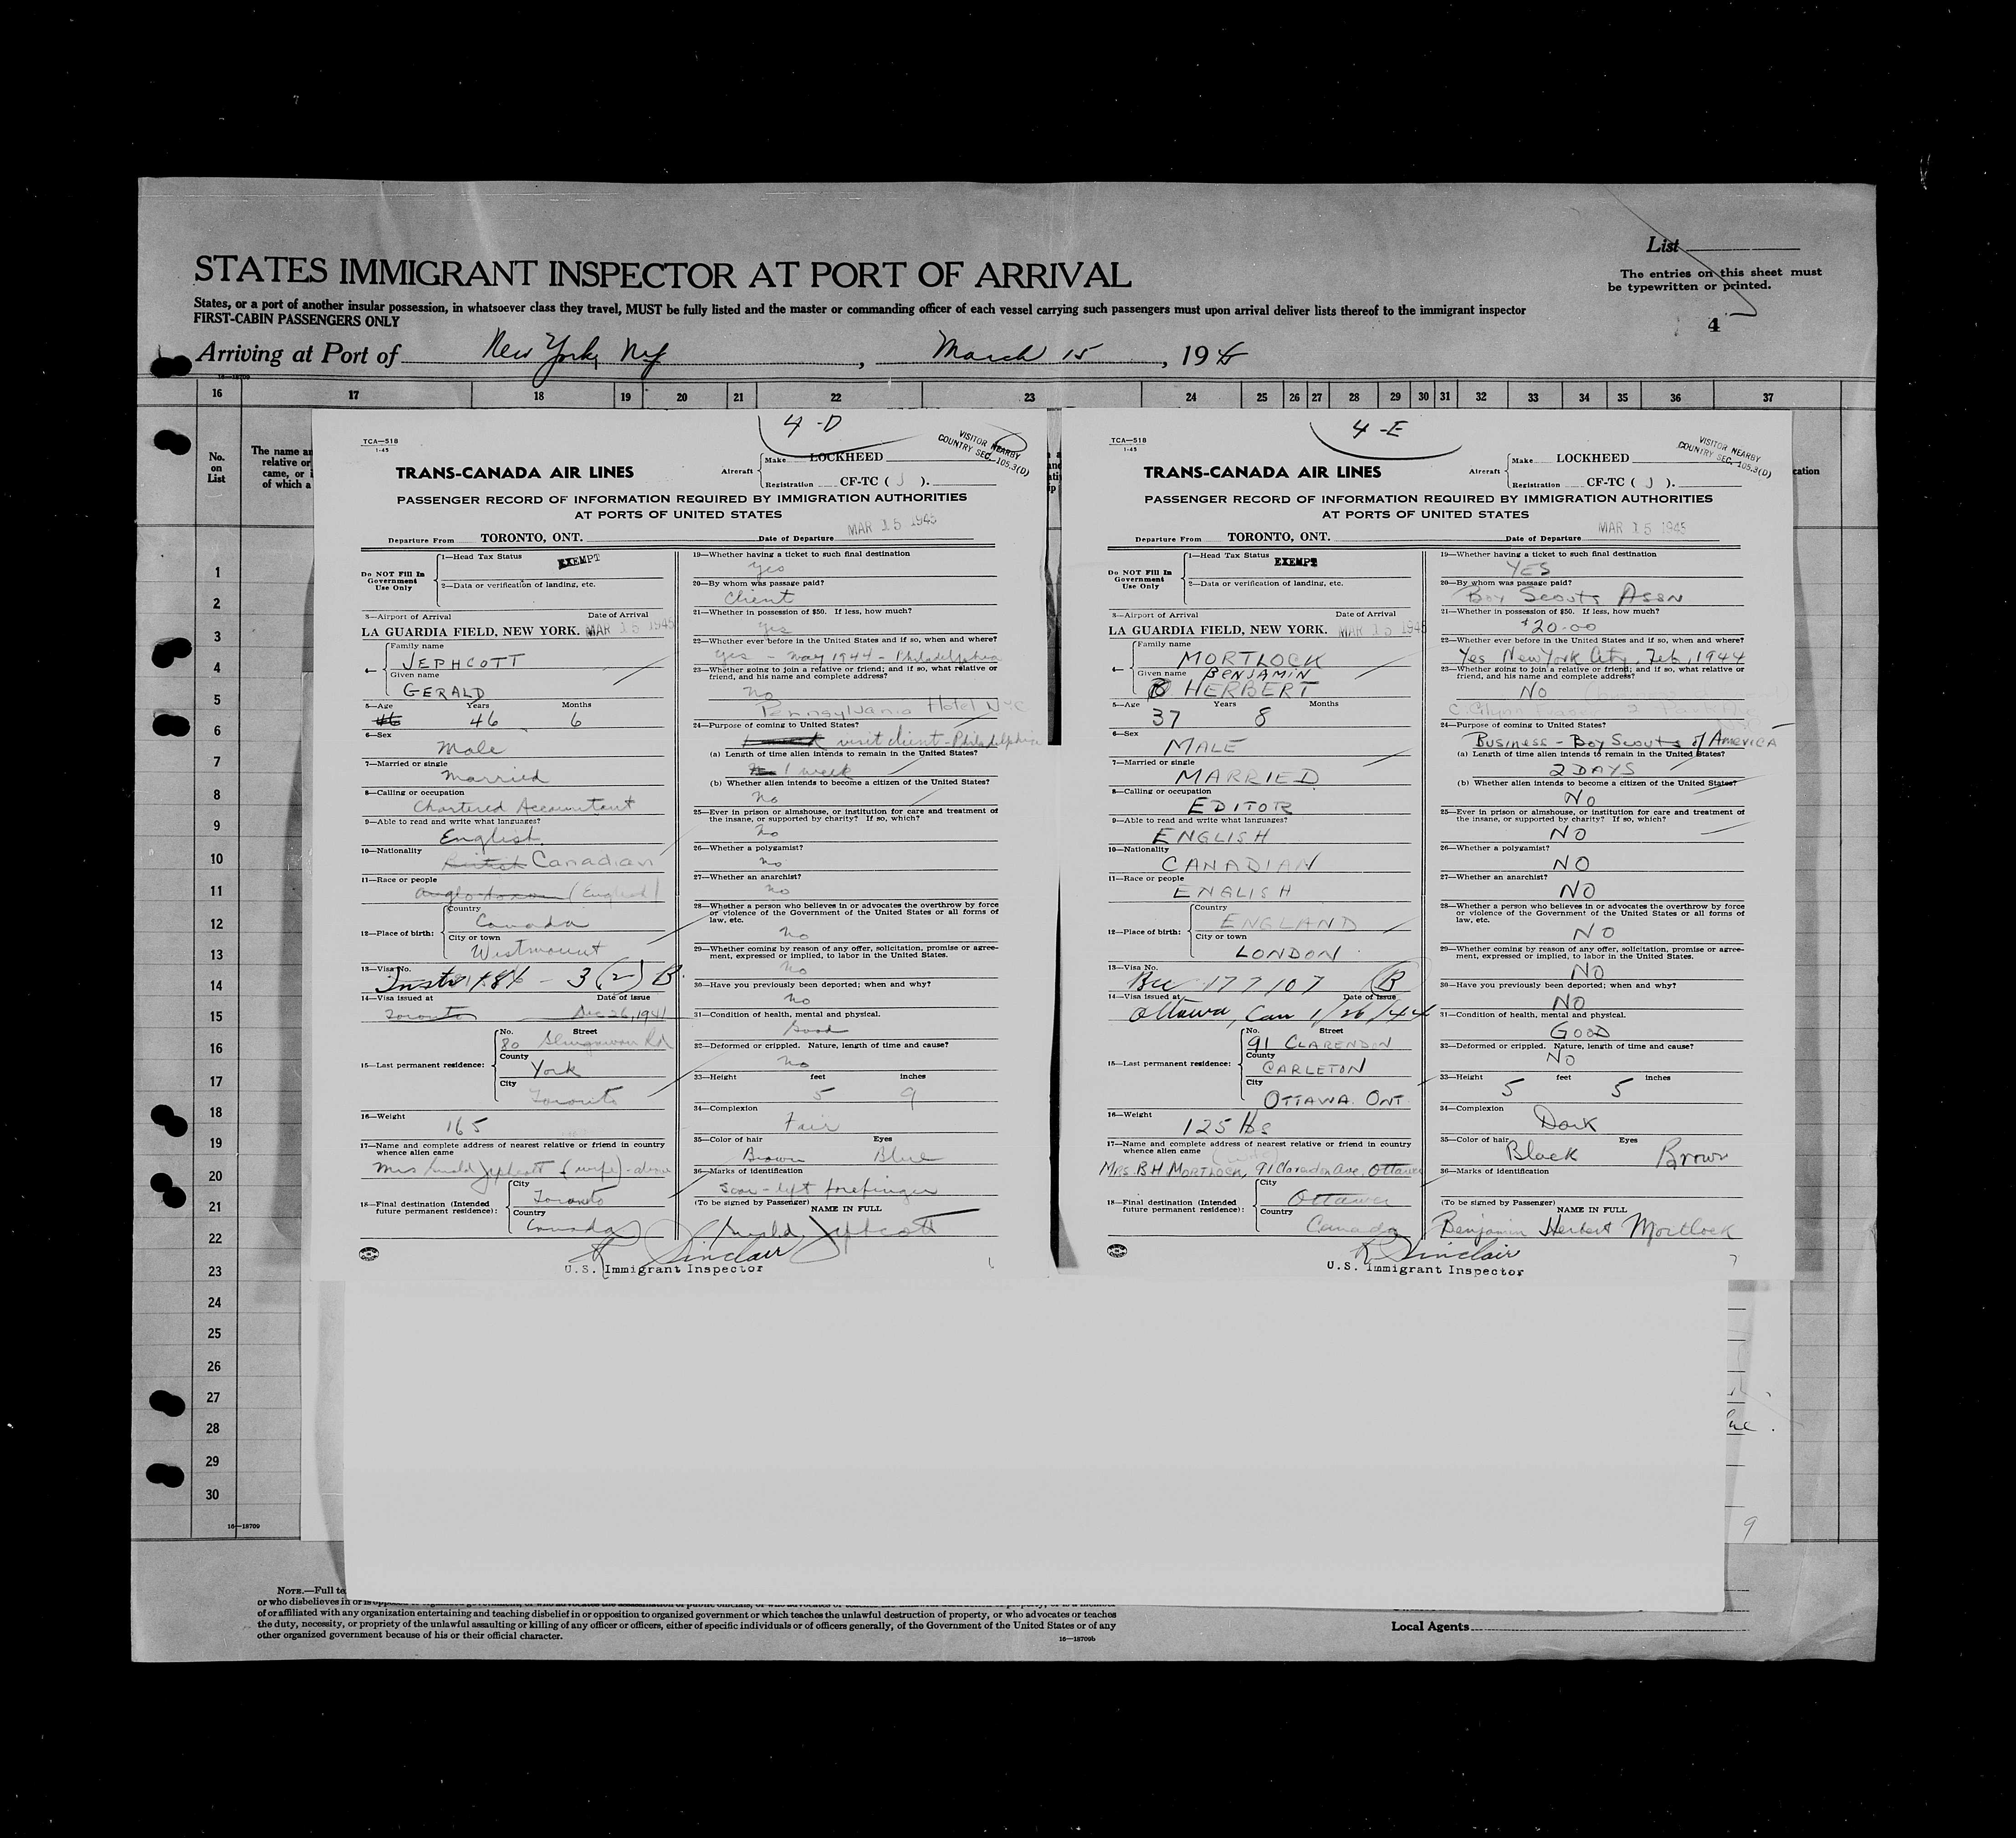 List
STATES IMMIGRANT INSPECTOR AT PORT OF ARRIVAL
The entries on this sheet must
be typewritten or printed.
States, or a port of another insular possession, in whatsoever class they travel, MUST be fully listed and the master or commanding officer of each vessel carrying such passengers must upon arrival deliver lists thereof to the immigrant inspector
FIRST-CABIN PASSENGERS ONLY
4
Arriving at Port of New York, NY, March 15, 1945
16—18709
16 17 18 19 20 21 22 23 24 25 26 27 28 29 30 31 32 33 34 35 36 37
No.
on
List
The name an
relative or
came, or i
of which a
4-D
TCA—518
1-45
VISITOR NEARBY
COUNTRY SEC. 105.3(D)
TRANS-CANADA AIR LINES
Aircraft
Make LOCKHEED
Registration CF-TC ( J ).
PASSENGER RECORD OF INFORMATION REQUIRED BY IMMIGRATION AUTHORITIES
AT PORTS OF UNITED STATES
Departure From TORONTO, ONT. Date of Departure MAR 15 1945
Do NOT Fill In
Government
Use Only
1—Head Tax Status EXEMPT
2—Data or verification of landing, etc.
3—Airport of Arrival Date of Arrival
LA GUARDIA FIELD, NEW YORK. MAR 15 1945
4—
Family name
JEPHCOTT
Given name
GERALD
5—Age Years Months
46 46 6
6—Sex
Male
7—Married or single
Married
8—Calling or occupation
Chartered Accountant
9—Able to read and write what languages?
English
10—Nationality
British Canadian
11—Race or people
Anglo Saxon (English)
12—Place of birth:
Country
Canada
City or town
Westmount
13—Visa No.
Instr 186 - 3(2) B.
14—Visa issued at Date of issue
Toronto Dec 26, 1941
15—Last permanent residence:
No. Street
80 Rd
County
York
City
Toronto
16—Weight
165
17—Name and complete address of nearest relative or friend in country
whence alien came
Mrs Gerald Jephcott (wife) - above
18—Final destination (Intended
future permanent residence):
City
Toronto
Country
Canada
19—Whether having a ticket to such final destination
Yes
20—By whom was passage paid?
Client
21—Whether in possession of $50. If less, how much?
Yes
22—Whether ever before in the United States and if so, when and where?
Yes - May 1944 - Philadelphia
23—Whether going to join a relative or friend; and if so, what relative or
friend, and his name and complete address?
No
Pennsylvania Hotel NYC
24—Purpose of coming to United States?
visit client - Philadelphia
(a) Length of time alien intends to remain in the United States?
1 week
(b) Whether alien intends to become a citizen of the United States?
No
25—Ever in prison or almshouse, or institution for care and treatment of
the insane, or supported by charity? If so, which?
No
26—Whether a polygamist?
No
27—Whether an anarchist?
No
28—Whether a person who believes in or advocates the overthrow by force
or violence of the Government of the United States or all forms of
law, etc.
No
29—Whether coming by reason of any offer, solicitation, promise or agree-
ment, expressed or implied, to labor in the United States.
No
30—Have you previously been deported; when and why?
No
31—Condition of health, mental and physical.
Good
32—Deformed or crippled. Nature, length of time and cause?
No
33—Height feet inches
5 9
34—Complexion
Fair
35—Color of hair Eyes
Brown Blue
36—Marks of identification
Scar - left forefinger
(To be signed by Passenger)
NAME IN FULL
Gerald Jephcott
R Sinclair
U.S. Immigrant Inspector
4-E
TCA—518
1-45
VISITOR NEARBY
COUNTRY SEC. 105.3(D)
TRANS-CANADA AIR LINES
Aircraft
Make LOCKHEED
Registration CF-TC ( J ).
PASSENGER RECORD OF INFORMATION REQUIRED BY IMMIGRATION AUTHORITIES
AT PORTS OF UNITED STATES
Departure From TORONTO, ONT. Date of Departure MAR 15 1945
Do NOT Fill In
Government
Use Only
1—Head Tax Status EXEMPT
2—Data or verification of landing, etc.
3—Airport of Arrival Date of Arrival
LA GUARDIA FIELD, NEW YORK. MAR 15 1945
4—
Family name
MORTLOCK
Given name BENJAMIN
HERBERT
5—Age Years Months
37 8
6—Sex
MALE
7—Married or single
MARRIED
8—Calling or occupation
EDITOR
9—Able to read and write what languages?
ENGLISH
10—Nationality
CANADIAN
11—Race or people
ENGLISH
12—Place of birth:
Country
ENGLAND
City or town
LONDON
13—Visa No.
Bcc 177107 (B)
14—Visa issued at Date of issue
Ottawa, Can 1/26/44
15—Last permanent residence:
No. Street
91 CLARENDON
County
CARLETON
City
OTTAWA. ONT.
16—Weight
125 lbs
17—Name and complete address of nearest relative or friend in country
whence alien came (wife)
MRS. B H MORTLOCK, 91 Clarendon Ave, Ottawa
18—Final destination (Intended
future permanent residence):
City
Ottawa
Country
Canada
19—Whether having a ticket to such final destination
YES
20—By whom was passage paid?
Boy Scouts ASSN
21—Whether in possession of $50. If less, how much?
$20.00
22—Whether ever before in the United States and if so, when and where?
Yes New York City, Feb, 1944
23—Whether going to join a relative or friend; and if so, what relative or
friend, and his name and complete address?
NO
24—Purpose of coming to United States?
Business - Boy Scouts of America
(a) Length of time alien intends to remain in the United States?
2 DAYS
(b) Whether alien intends to become a citizen of the United States?
NO
25—Ever in prison or almshouse, or institution for care and treatment of
the insane, or supported by charity? If so, which?
NO
26—Whether a polygamist?
NO
27—Whether an anarchist?
NO
28—Whether a person who believes in or advocates the overthrow by force
or violence of the Government of the United States or all forms of
law, etc.
NO
29—Whether coming by reason of any offer, solicitation, promise or agree-
ment, expressed or implied, to labor in the United States.
NO
30—Have you previously been deported; when and why?
NO
31—Condition of health, mental and physical.
GOOD
32—Deformed or crippled. Nature, length of time and cause?
NO
33—Height feet inches
5 5
34—Complexion
Dark
35—Color of hair Eyes
Black Brown
36—Marks of identification
(To be signed by Passenger)
NAME IN FULL
Benjamin Herbert Mortlock
R Sinclair
U.S. Immigrant Inspector
7
cation
1
2
3
4
5
6
7
8
9
10
11
12
13
14
15
16
17
18
19
20
21
22
23
24
25
26
27
28
29
30
16—18709
9
NOTE.—Full te
or who disbelieves in or is
of or affiliated with any organization entertaining and teaching disbelief in or opposition to organized government or which teaches the unlawful destruction of property, or who advocates or teaches
the duty, necessity, or propriety of the unlawful assaulting or killing of any officer or officers, either of specific individuals or of officers generally, of the Government of the United States or of any
other organized government because of his or their official character.
16—18709b
Local Agents